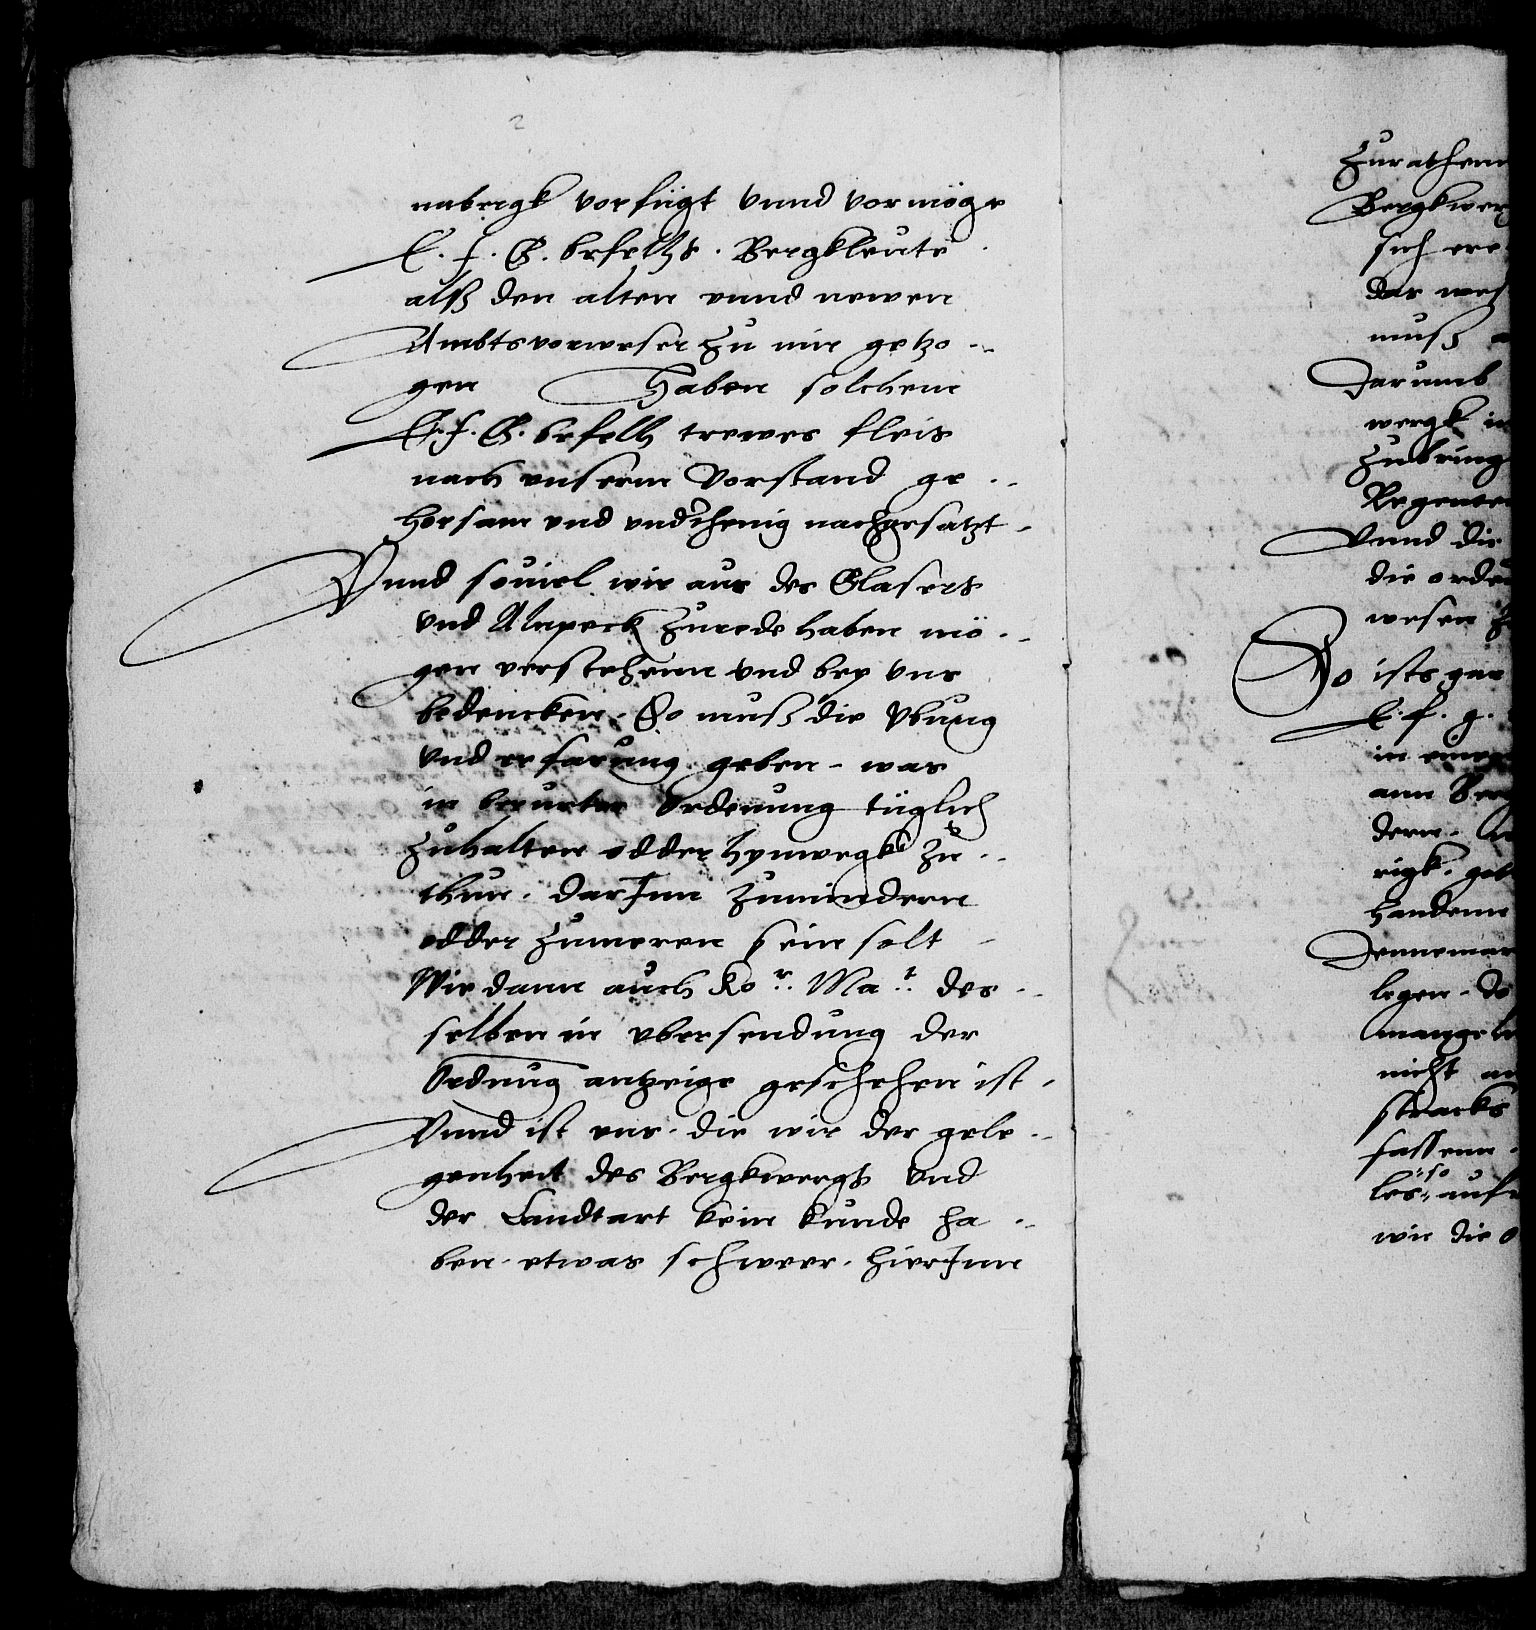 nabergk vorfügt vnnd vormöge
E. f. G. befelhs. Bergkleute
alß den alten vnnd newen
Ambtsvorweser zu mir getzo-
gen Haben solchem
E. f. G. befelh trewes fleis
nach vnserm vorstand ge-
horsam vnd vnd'thenig nachgesatzt.
Vnnd souiel wir aus des Glasers
vnd Alnpeck zurede haben mö-
gen verstehenn vnd bey vns
bedencken. So muß die Vbung
vnd erfarung geben. was
in berurter Ordenung tüglich
zuhalten odder hynwegk zu-
thun. darInn zumindern
odder zumeren sein solt
Wie dann auch Ko r. Ma t. des-
selben in vbersendung der
Ordnug antzeige geschehen ist.
Vnnd ist vns. die wir der gele-
genheit des Bergkwergs vnd
der Landtart kein kunde ha-
ben. etwas schweer. hierInn
zurathenn
Bergkwerg
sich ere
dar
muß
Darumb
wergk in
zubring
Regenten
Vnnd die
die orden
wesen
So ists gar
E. f. g.
in
ann Berg
dern.
rigk. geb
handenn
Dennemar
legen. do
mangel
nicht
stracks
fassenn.
les so auf
wie die O